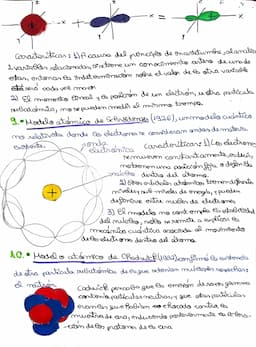 x x x
Características: 1) A causa del principio de incertidumbre, al analizar
2 variables relacionadas, si se tiene un conocimiento certero de una de
ellas, entonces la indeterminación sobre el valor de la otra variable
será cada vez mayor
2) El momento lineal y la posición de un electrón, u otra partícula
subatómica, no se pueden medir al mismo tiempo.
9. • Modelo atómico de Schrödinger (1926), un modelo cuántico
no relativista donde los electrones se consideran ondas de materia
existente.
onda
electrónica
Características: 1) Los electrones
se mueven constantemente, es decir,
no tienen una posición fija o definida
dentro del átomo.
2) Estos orbitales atómicos
niveles y sub niveles de energía, y pueden
definirse entre nubes de electrones.
3) El modelo no contempla la estabilidad
del núcleo, solo se remite a explicar la
mecánica cuántica asociada al movimiento
de los electrones dentro del átomo.
10. • Modelo atómico de Chadwick (1932) confirmó la existencia
de otra partícula subatómica de la que se tenían múltiples sospechas:
el neutrón.
Chadwick pensó que la emisión de
contenía partículas neutras y que estas partículas
eran las que habían chocado contra la
muestra de cera, induciendo posteriormente la
ción de los protones de la cera